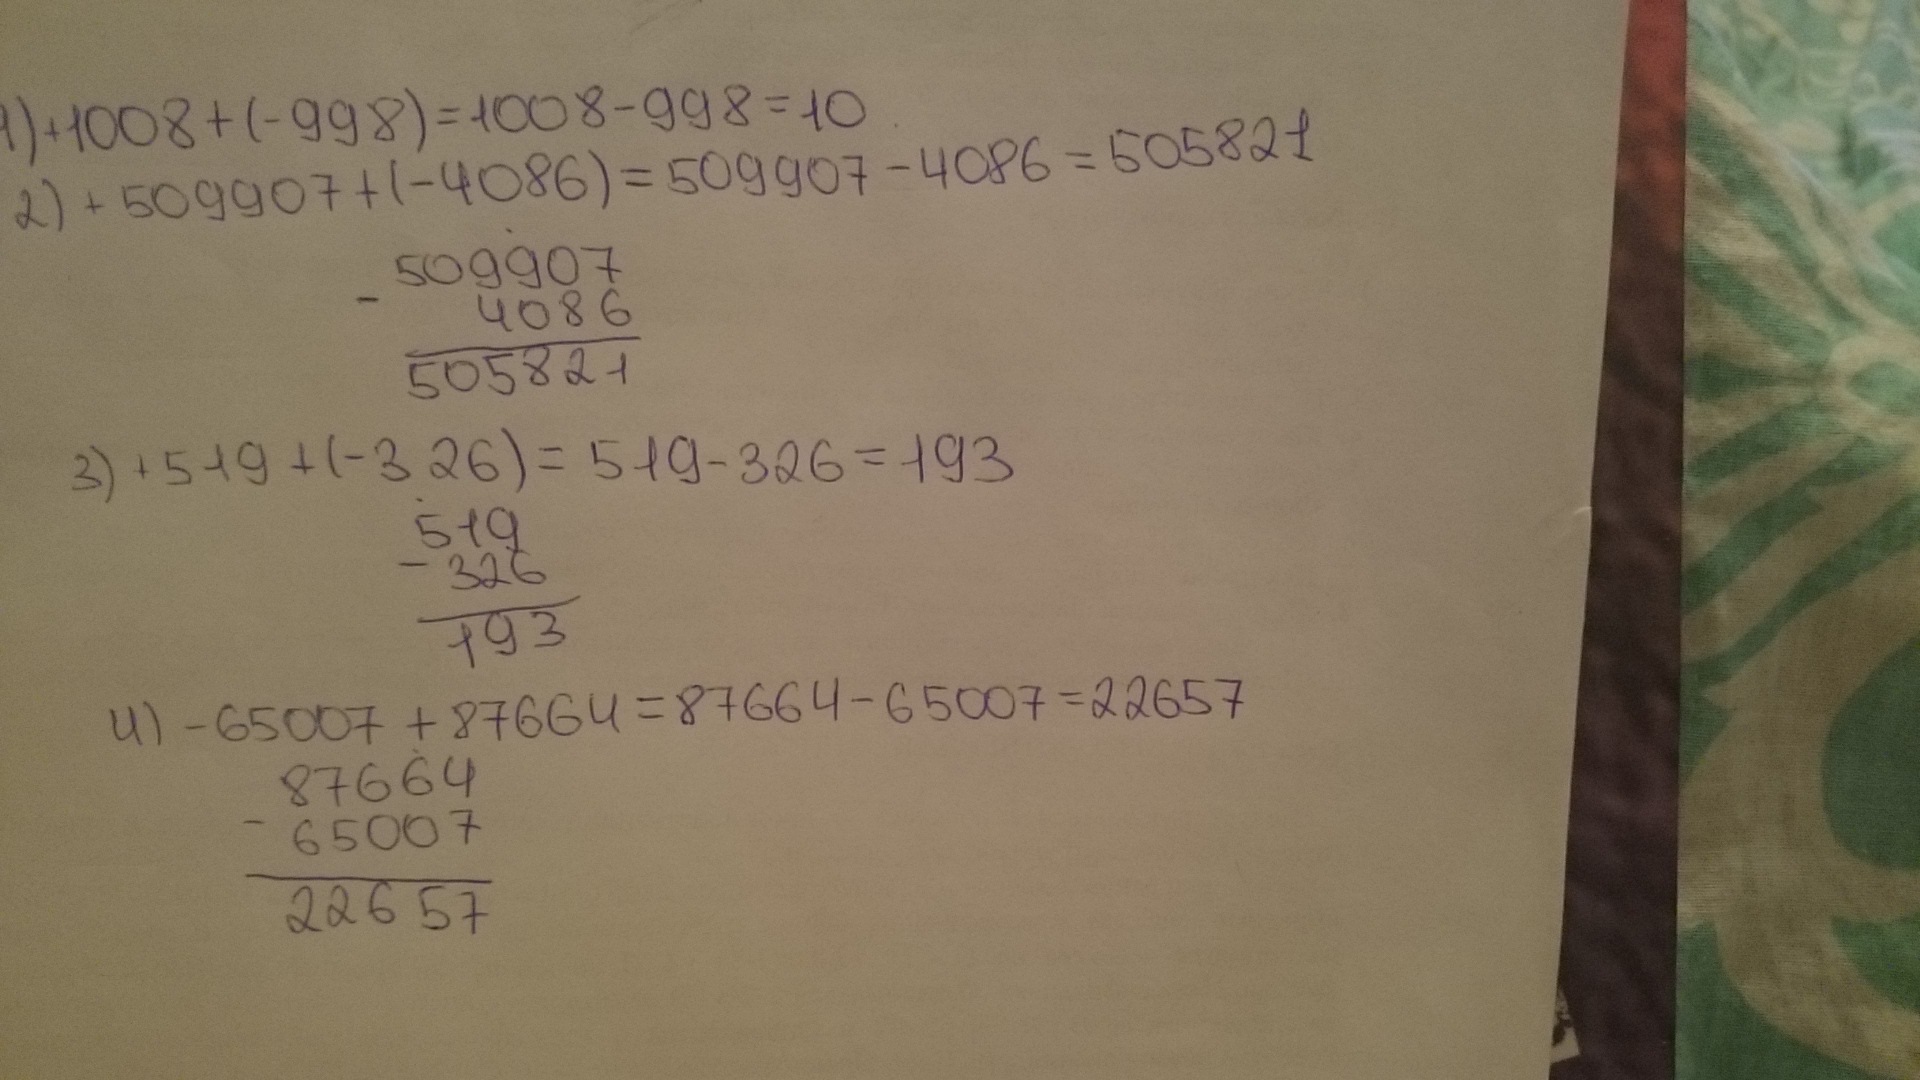 1) +1008+(-998)=1008-998=10
2) +509907+(-4086)=509907-4086=505821
509907
- 4086
505821
3) +519+(-326)=519-326=193
519
- 326
193
4) -65007+87664=87664-65007=22657
87664
- 65007
22657